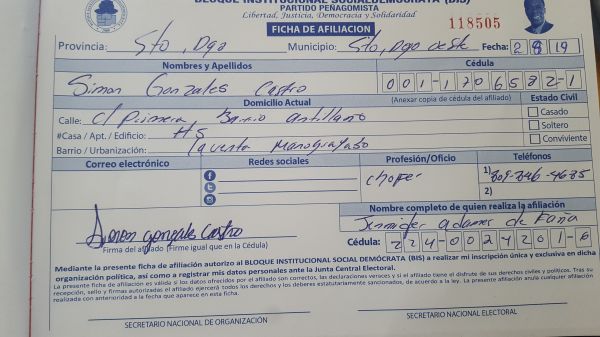 BLOQUE INSTITUCIONAL SOCIALDEMÓCRATA (BIS)
PARTIDO PEÑAGOMISTA
Libertad, Justicia, Democracia y Solidaridad
118505
FICHA DE AFILIACION
Provincia: Sto, Dgo Municipio: Sto, Dgo oeste Fecha: 2 8 19
Nombres y Apellidos Cédula
Simon Gonzales Castro 001-1706582-1
Domicilio Actual (Anexar copia de cédula del afiliado) Estado Civil
Calle: c/ Primera Barrio antillano Casado
#Casa / Apt. / Edificio: #5 Soltero
Barrio / Urbanización: la venta Manoguayabo Conviviente
Correo electrónico Redes sociales Profesión/Oficio Teléfonos
chofer 1) 809-846-4685
2)
Nombre completo de quien realiza la afiliación
Jennifer adames de
Simon gonzale Castro
Firma del afiliado (Firme igual que en la Cédula) Cédula: 224-0024201-6
Mediante la presente ficha de afiliación autorizo al BLOQUE INSTITUCIONAL SOCIAL DEMÓCRATA (BIS) a realizar mi inscripción única y exclusiva en dicha
organización política, así como a registrar mis datos personales ante la Junta Central Electoral.
La presente ficha de afiliación es válida si los datos ofrecidos por el afiliado son correctos, las declaraciones veraces y si el afiliado tiene el disfrute de sus derechos civiles y políticos. Tras su
recepción, sello y firmas autorizadas el afiliado ejercerá todos los derechos y los deberes estatutariamente sancionados, de acuerdo a la ley. La presente afiliación anula cualquier afiliación
realizada con anterioridad a la fecha que aparece en esta ficha.
SECRETARIO NACIONAL DE ORGANIZACIÓN SECRETARIO NACIONAL ELECTORAL